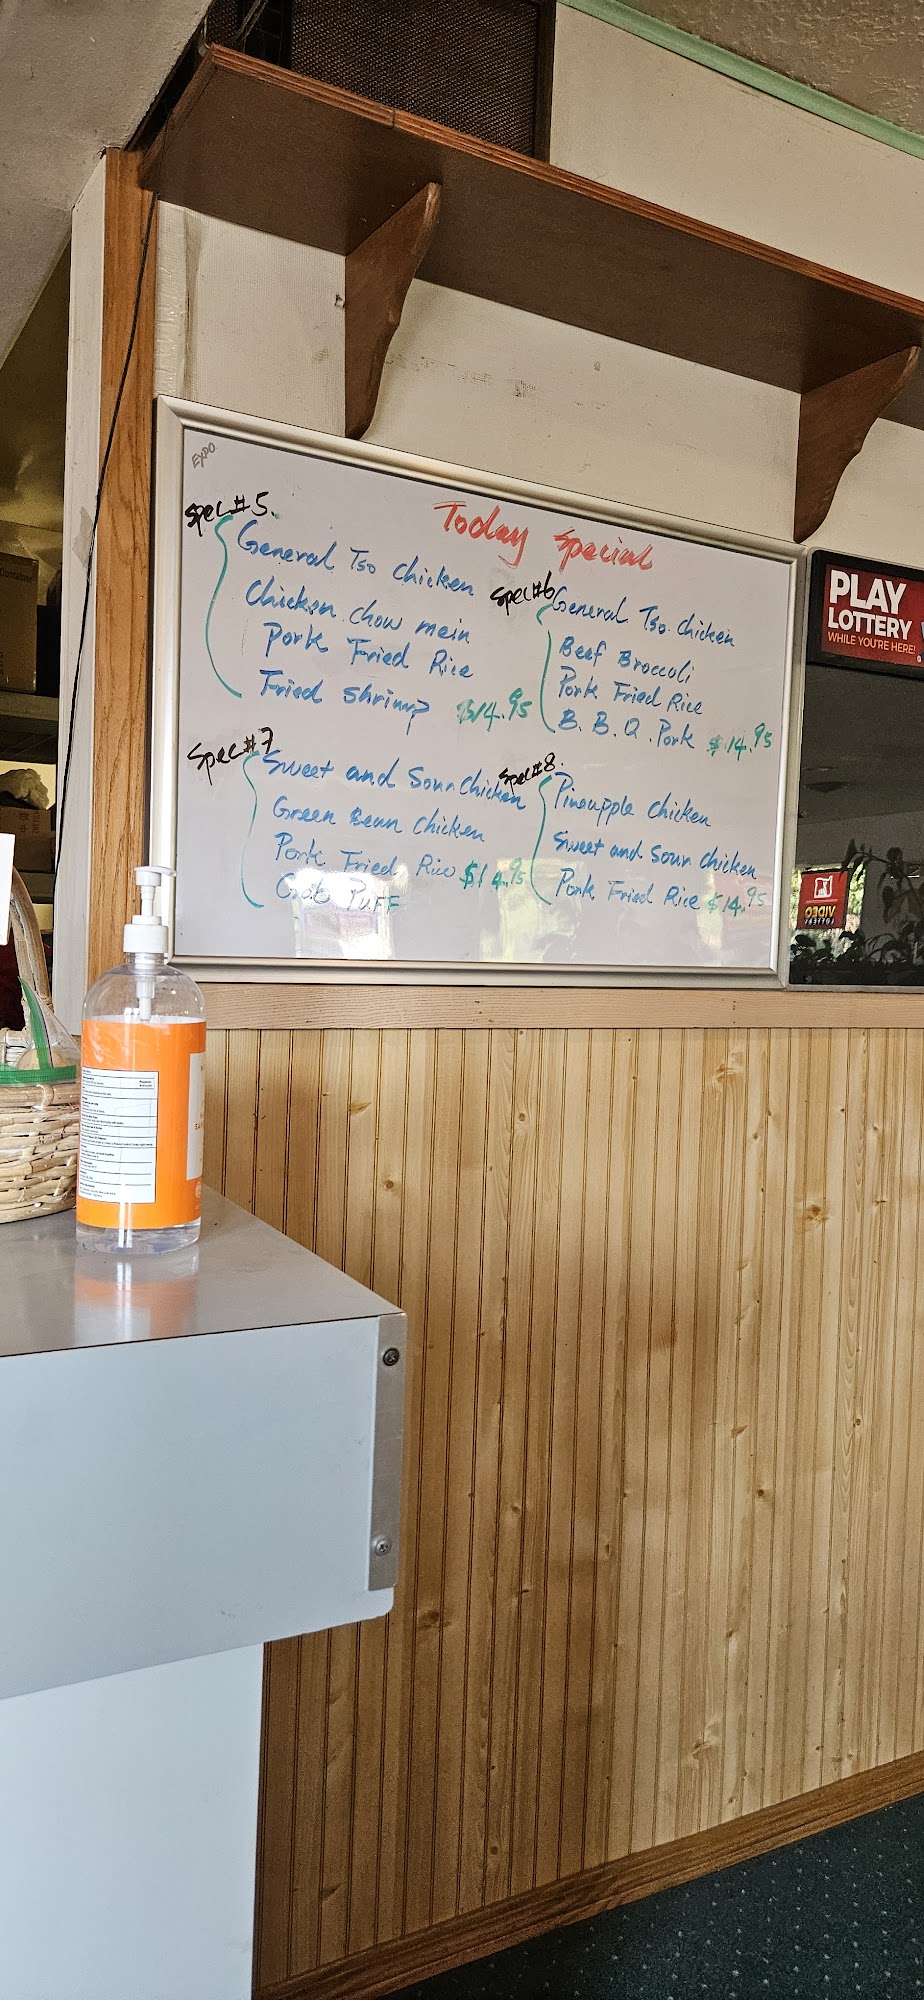 EXPO
Today Special
Spec#5.
General Tso chicken
Chicken chow mein
Pork Fried Rice
Fried Shrimp $14.95
Spec#6
General Tso. Chicken
Beef Broccoli
Pork Fried Rice
B. B. Q. Pork $14.95
Spec#7
Sweet and Sour Chicken
Green Bean Chicken
Pork Fried Rice $14.95
Crab Puff
Spec#8.
Pineapple Chicken
Sweet and Sour Chicken
Pork Fried Rice $14.95
PLAY
LOTTERY
WHILE YOU'RE HERE!
VIDEO
LOTTERY